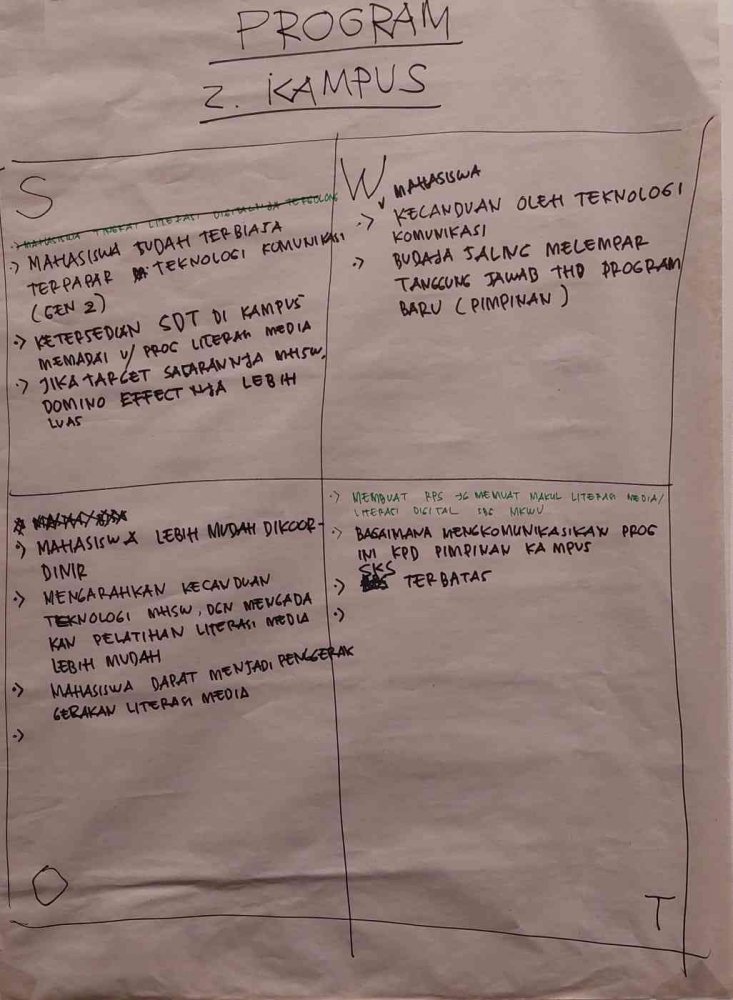 PROGRAM
2. KAMPUS
S
·> MAHASISWA TINGKAT LITERASI DIGITALNJA TERGOLONG
·> MAHASISWA SUDAH TERBIASA
TERPAPAR TEKNOLOGI KOMUNIKASI
(GEN Z)
·> KETERSEDIAN SDT DI KAMPUS
MEMADAI U/ PROG LITERASI MEDIA
·> JIKA TARGET SASARANNJA MHSW,
DOMINO EFFECTNJA LEBIH
LUAS
W
MAHASISWA
·> KECANDUAN OLEH TEKNOLOGI
KOMUNIKASI
·> BUDAJA SALING MELEMPAR
TANGGUNG JAWAB THD PROGRAM
BARU (PIMPINAN)
·> MAHASISWA LEBIH MUDAH DIKOOR-
DINIR
·> MENGARAHKAN KECANDUAN
TEKNOLOGI MHSW, DGN MENGADA
KAN PELATIHAN LITERASI MEDIA
LEBIH MUDAH
·> MAHASISWA DAPAT MENJADI PENGGERAK
GERAKAN LITERASI MEDIA
·>
O
·> MEMBUAT RPS JG MEMUAT MAKUL LITERASI MEDIA/
LITERASI DIGITAL SBG MKWU
·> BAGAIMANA MENGKOMUNIKASIKAN PROG
INI KPD PIMPINAN KAMPUS
SKS
·> TERBATAS
·>
T